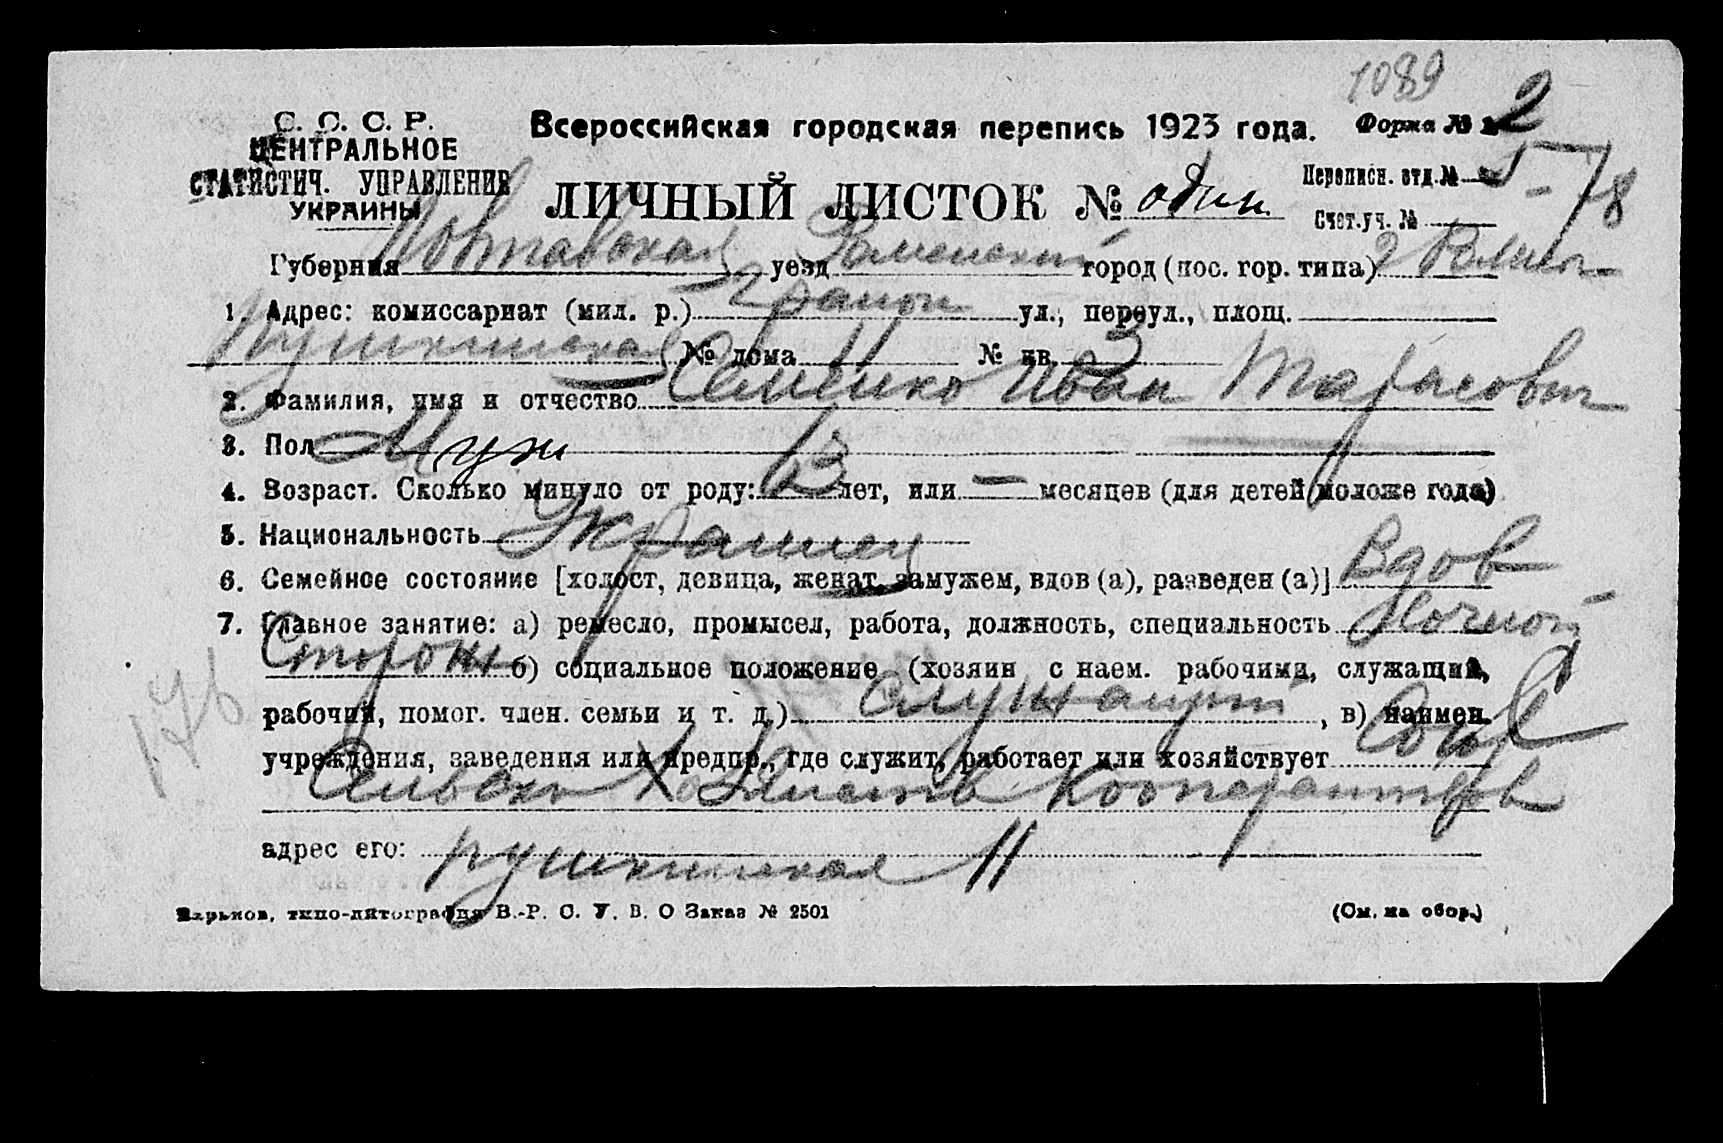 1089
С. С. С. Р.
ЦЕНТРАЛЬНОЕ
СТАТИСТИЧ. УПРАВЛЕНИЕ
УКРАИНЫ
Всероссийская городская перепись 1923 года.
Форма № 2
ЛИЧНЫЙ ЛИСТОК № один
Переписн. отд. № 5-78
Счет.уч. №
Губерния Полтавская уезд Роменский город (пос. гор. типа) г Ромны
1. Адрес: комиссариат (мил. р.) 2 район ул., переул., площ.
Пушкинская № дома 11 № кв. 3
2. Фамилия, имя и отчество Семенко Иван Тарасович
3. Пол Муж
4. Возраст. Сколько минуло от роду: 63 лет, или — месяцев (для детей моложе года)
5. Национальность Украинец
6. Семейное состояние [холост, девица, женат, замужем, вдов (а), разведен (а)] Вдов
7. Главное занятие: а) ремесло, промысел, работа, должность, специальность Ночной
Сторож б) социальное положение (хозяин с наем. рабочими, служащий,
рабочий, помог. член. семьи и т. д.) служащий, в) наимен.
учреждения, заведения или предпр., где служит, работает или хозяйствует Союз
Сельско Хозяйств Кооперативов
адрес его: Пушкинская 11
176
Харьков, типо-литография В.-Р. С. У. В. О Заказ № 2501
(См. на обор.)